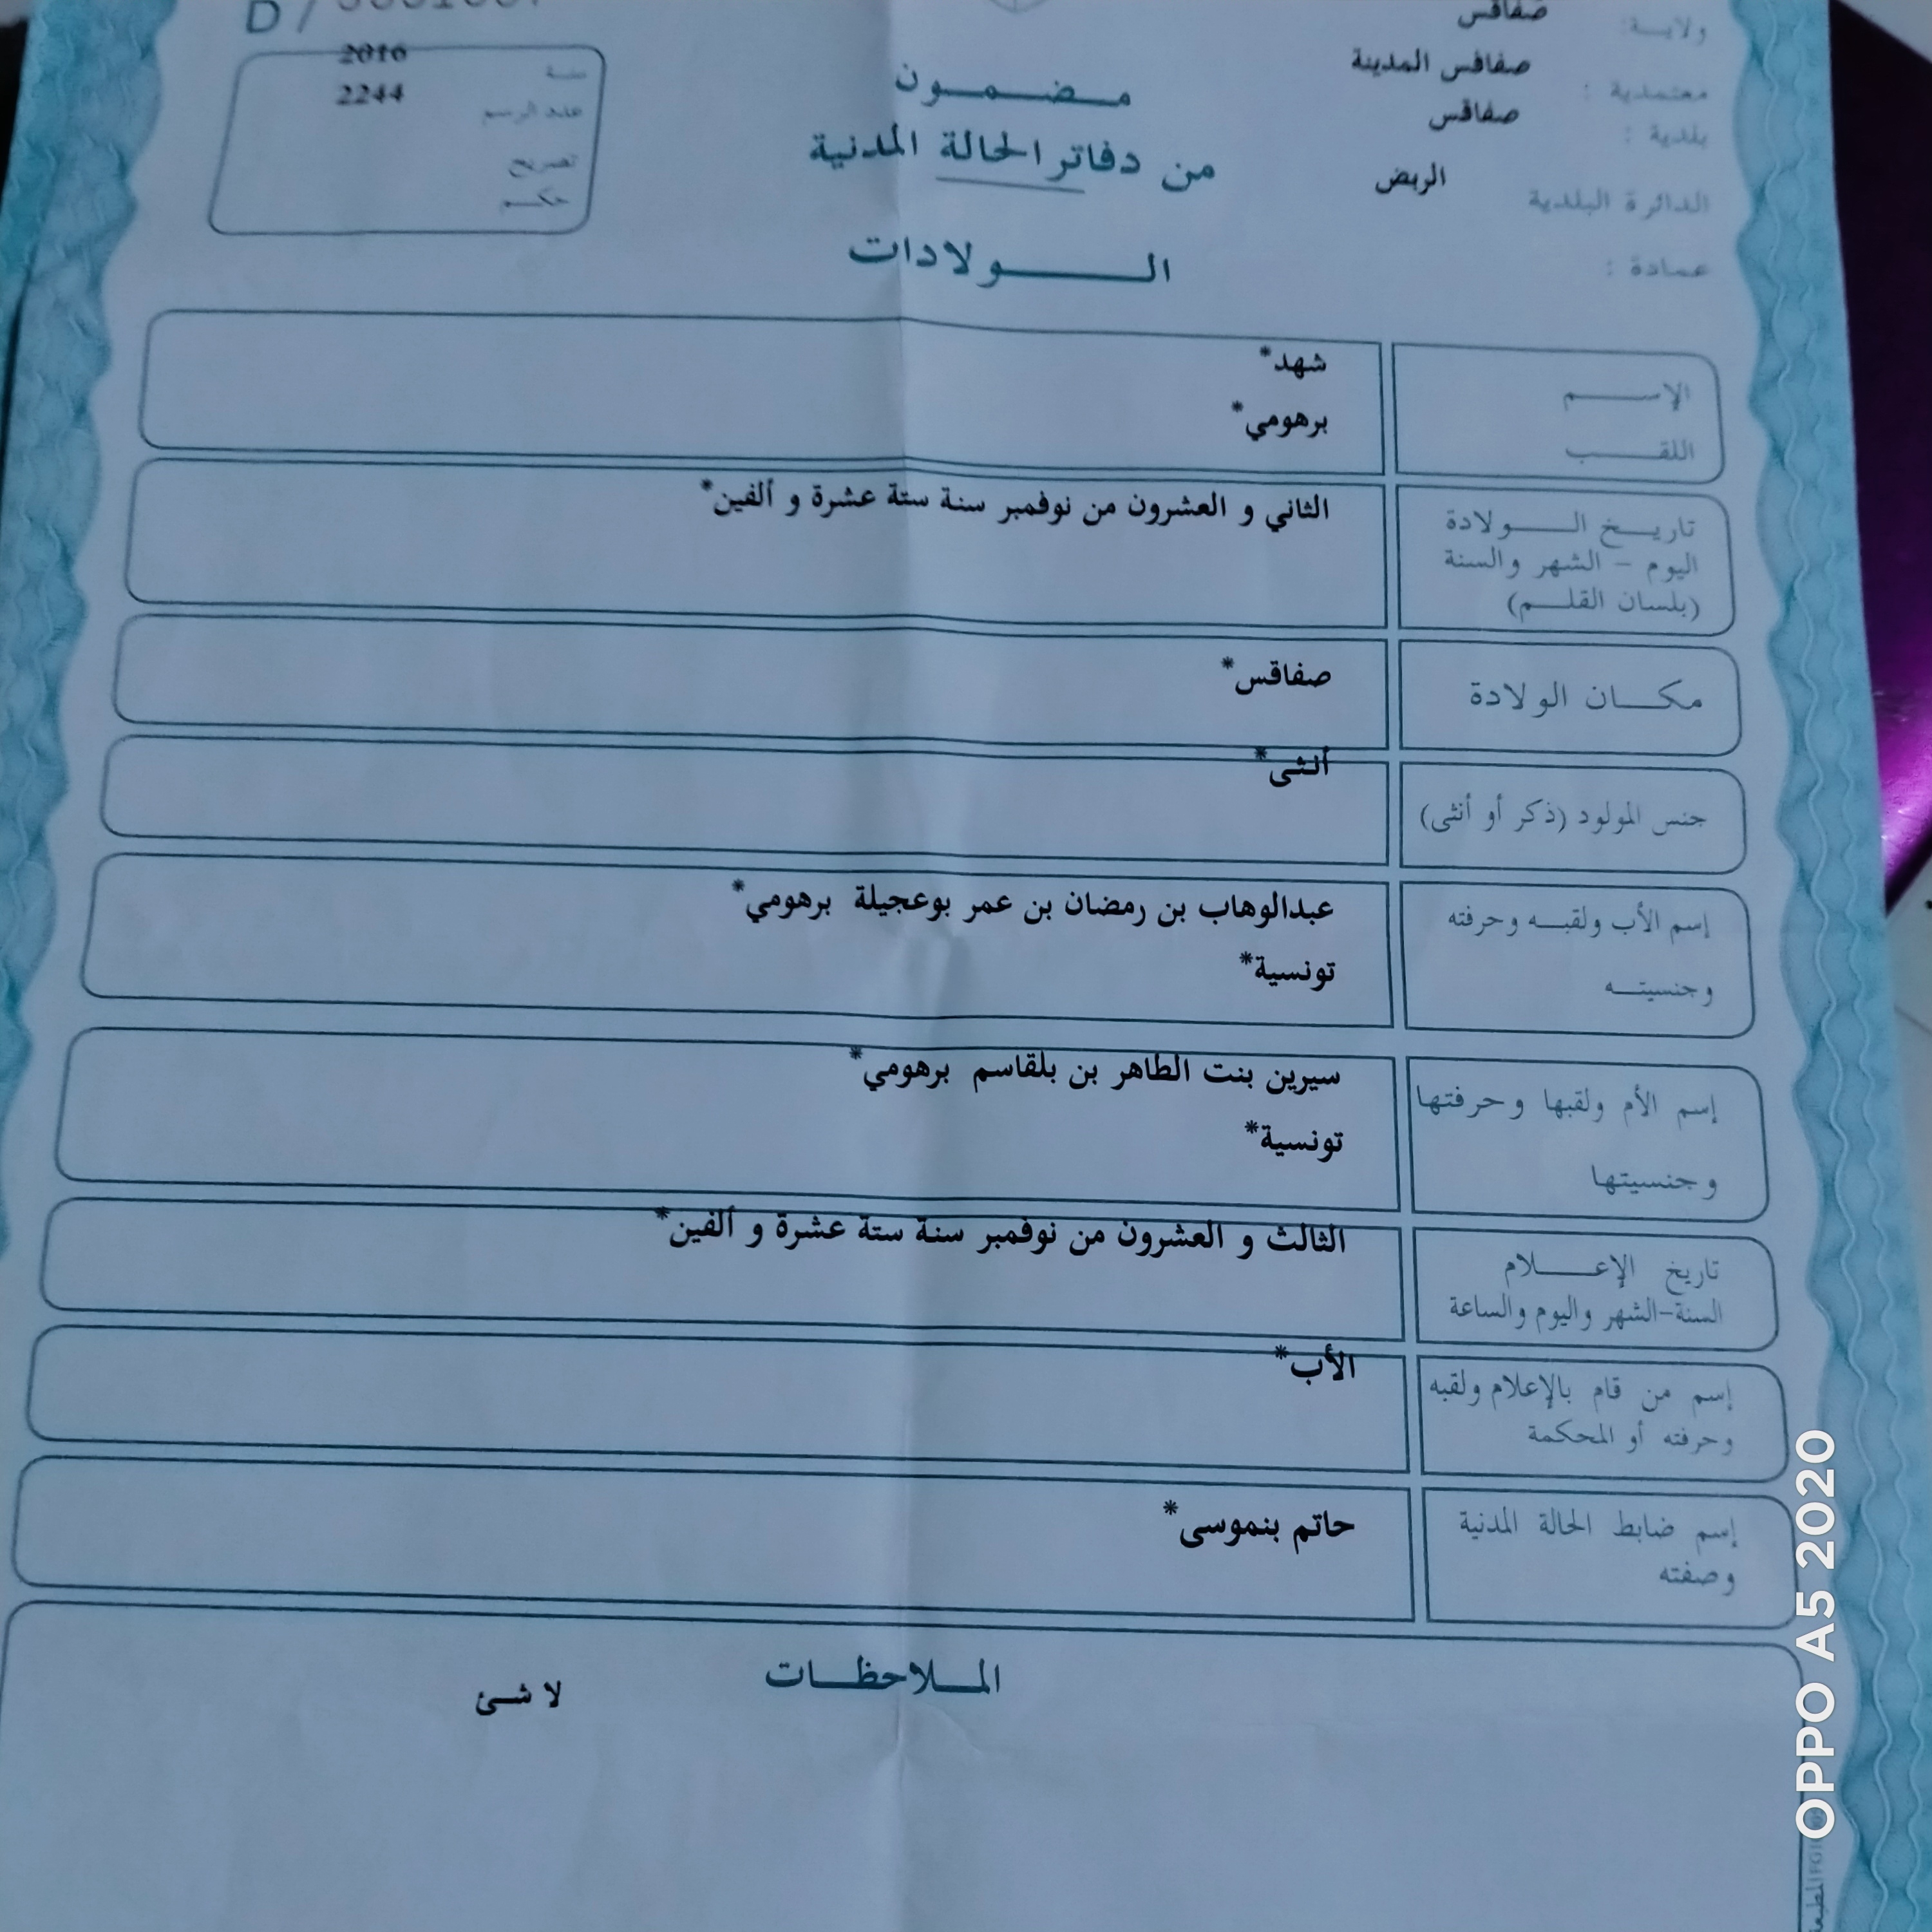 D /
ولاية: صفاقس
معتمدية : صفاقس المدينة
بلدية : صفاقس
الدائرة البلدية الربض
عمادة :
مضمون
من دفاتر الحالة المدنية
الولادات
سنة 2016
عدد الرسم 2244
تصريح
حكم
الإسم شهد*
اللقب برهومي*
تاريخ الولادة الثاني و العشرون من نوفمبر سنة ستة عشرة و ألفين*
اليوم - الشهر والسنة
(بلسان القلم)
مكان الولادة صفاقس*
جنس المولود (ذكر أو أنثى) أنثى*
إسم الأب ولقبه وحرفته عبدالوهاب بن رمضان بن عمر بوعجيلة برهومي*
وجنسيته تونسية*
إسم الأم ولقبها وحرفتها سيرين بنت الطاهر بن بلقاسم برهومي*
وجنسيتها تونسية*
تاريخ الإعلام الثالث و العشرون من نوفمبر سنة ستة عشرة و ألفين*
السنة-الشهر واليوم والساعة
إسم من قام بالإعلام ولقبه الأب*
وحرفته أو المحكمة
إسم ضابط الحالة المدنية حاتم بنموسى*
وصفته
الملاحظات
لا شئ
OPPO A5 2020